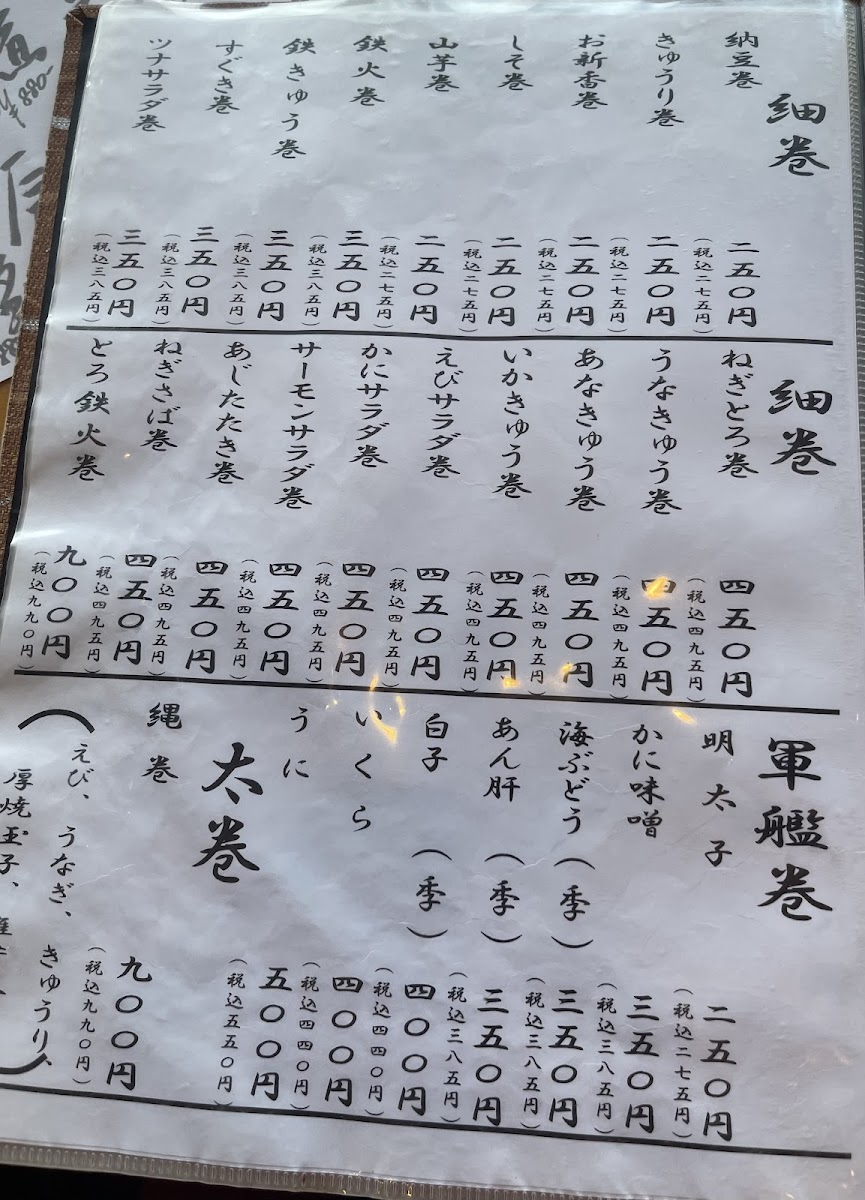 細巻
納豆巻
二五〇円
(税込二七五円)
きゅうり巻
二五〇円
(税込二七五円)
お新香巻
二五〇円
(税込二七五円)
しそ巻
二五〇円
(税込二七五円)
山芋巻
二五〇円
(税込二七五円)
鉄火巻
三五〇円
(税込三八五円)
鉄きゅう巻
三五〇円
(税込三八五円)
すぐき巻
三五〇円
(税込三八五円)
ツナサラダ巻
三五〇円
(税込三八五円)
細巻
ねぎとろ巻
四五〇円
(税込四九五円)
うなきゅう巻
四五〇円
(税込四九五円)
あなきゅう巻
四五〇円
(税込四九五円)
いかきゅう巻
四五〇円
(税込四九五円)
えびサラダ巻
四五〇円
(税込四九五円)
かにサラダ巻
四五〇円
(税込四九五円)
サーモンサラダ巻
四五〇円
(税込四九五円)
あじたたき巻
四五〇円
(税込四九五円)
ねぎさば巻
四五〇円
(税込四九五円)
とろ鉄火巻
九〇〇円
(税込九九〇円)
軍艦巻
明太子
二五〇円
(税込二七五円)
かに味噌
三五〇円
(税込三八五円)
海ぶどう(季)
三五〇円
(税込三八五円)
あん肝(季)
三五〇円
(税込三八五円)
白子(季)
四〇〇円
(税込四四〇円)
いくら
四〇〇円
(税込四四〇円)
うに
五〇〇円
(税込五五〇円)
太巻
縄巻
九〇〇円
(税込九九〇円)
えび、うなぎ、きゅうり、
厚焼玉子、
¥880-